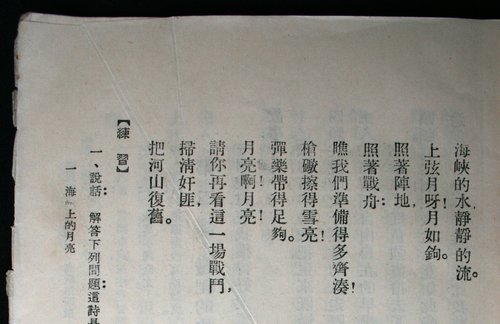 海峽的水靜靜的流。
上弦月呀月如鉤。
照著陣地，
照著戰舟：
瞧我們準備得多齊湊！
槍礮擦得雪亮！
彈藥帶得足夠。
月亮啊！月亮！
請你再看這一場戰鬥，
掃清奸匪，
把河山復舊。
【練習】
一、說話：解答下列問題：這詩是
一 海上的月亮